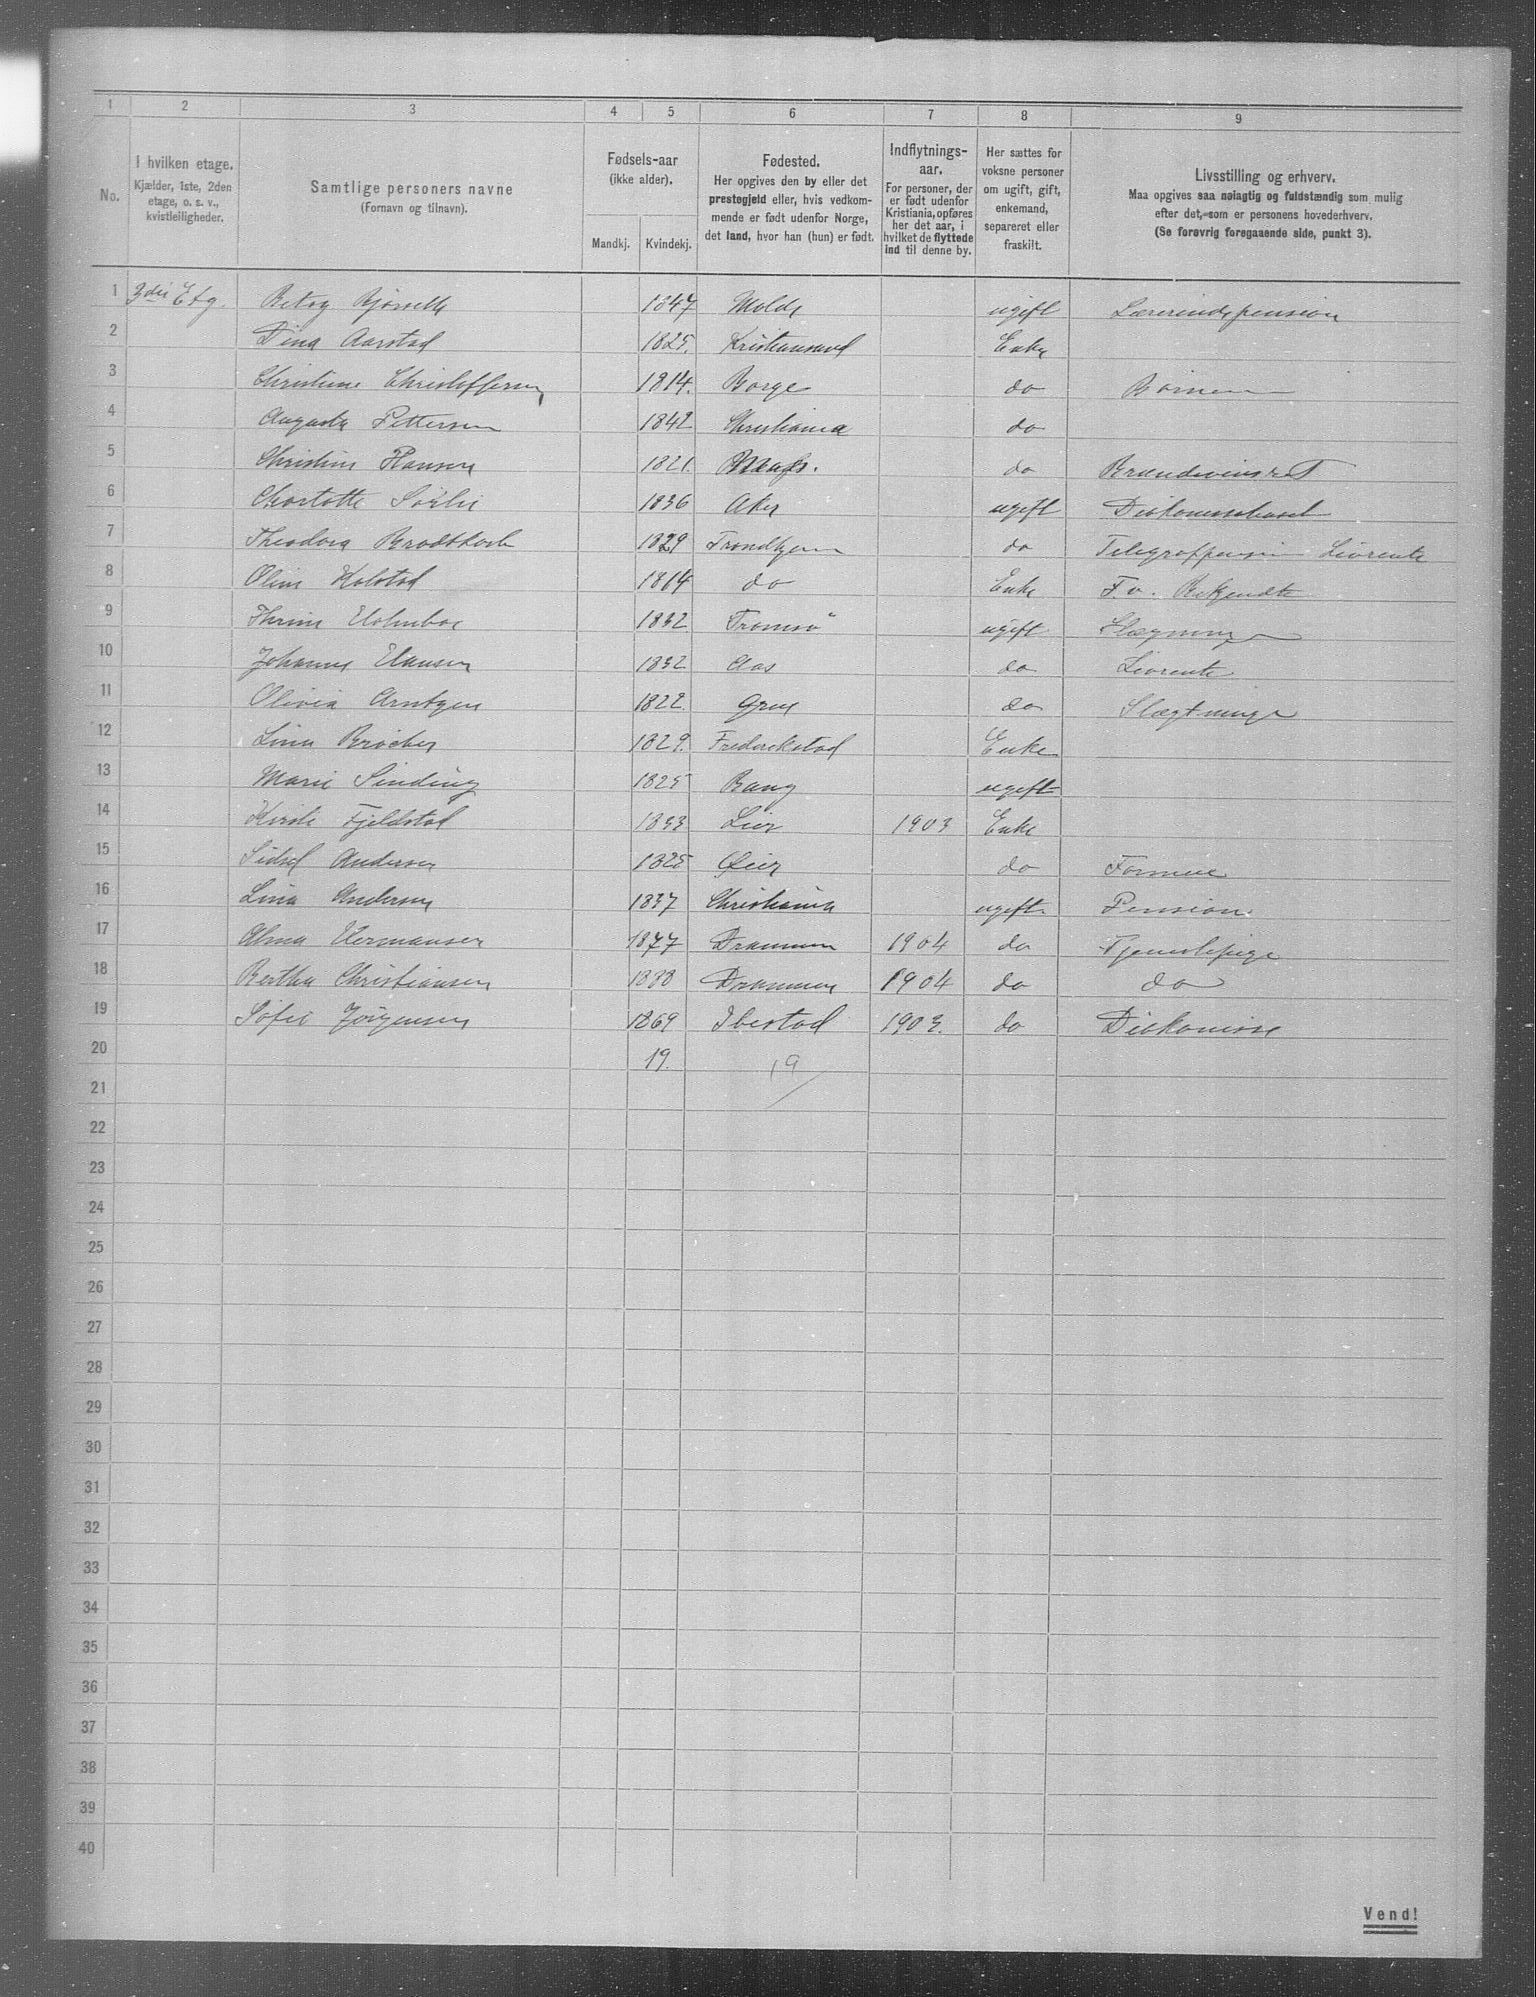 1 2 3 4 5 6 7 8 9
No.
I hvilken etage.
Kjælder, 1ste, 2den
etage, o. s. v.,
kvistleiligheder.
Samtlige personers navne
(Fornavn og tilnavn).
Fødsels-aar
(ikke alder).
Mandkj. Kvindekj.
Fødested.
Her opgives den by eller det
prestegjeld eller, hvis vedkom-
mende er født udenfor Norge,
det land, hvor han (hun) er født.
Indflytnings-
aar.
For personer, der
er født udenfor
Kristiania, opføres
her det aar, i
hvilket de flyttede
ind til denne by.
Her sættes for
voksne personer
om ugift, gift,
enkemand,
separeret eller
fraskilt.
Livsstilling og erhverv.
Maa opgives saa nøiagtig og fuldstændig som mulig
efter det, som er personens hovederhverv.
(Se forøvrig foregaaende side, punkt 3).
1 3die Etg. Betsy 1847 Molde ugift Lærerindepension
2 Dina Aarstad 1825. Kristiansand Enke
3 Christine Christoffersen 1814. Borge do Børnene
4 Augusta Pettersen 1842 Christiania do
5 Christine Hansen 1821. do
6 Charlotte Sørlie 1836 Aker ugift
7 Theodora 1829 Trondhjem do Livrente
8 Oline Kolstad 1814 do Enke F. v. Bekjendte
9 Thrine Holmboe 1832 Tromsø ugift
10 Johanne Hansen 1832 Aas do Livrente
11 Olivia Arntzen 1822 Grue do Slægtninge
12 Lina Brocher 1829. Frederikstad Enke
13 Marie Sinding 1825 Bang ugift
14 Kirsti Fjeldstad 1833 Lier 1903 Enke
15 Sidsel Andersen 1825 Øier do Formue
16 Lina Andersen 1837 Christiania ugift Pension
17 Alma Hermansen 1877 Drammen 1904 do Tjenestepige
18 Bertha Christiansen 1880 Drammen 1904 do do
19 Sofie Jørgensen 1869 Ibestad 1903. do Diakonisse
20 19. 19
21
22
23
24
25
26
27
28
29
30
31
32
33
34
35
36
37
38
39
40
Vend!